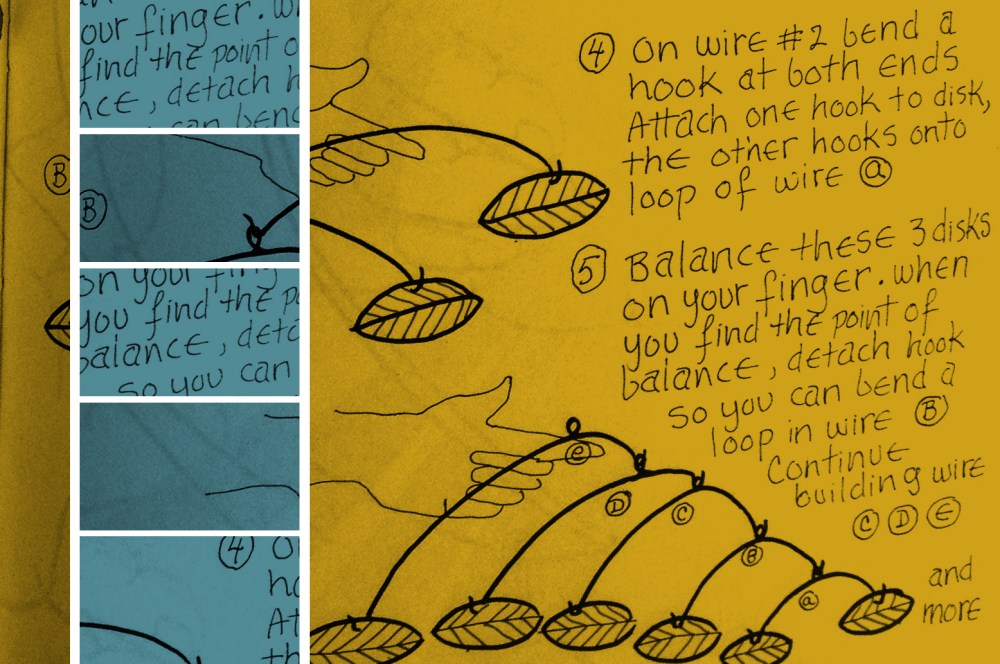 B
our finger. w
find the point o
nce, detach h
can bend
B
on your fing
you find the p
balance, deta
so you can
④ O
ho
At
th
④ On wire #2 bend a
hook at both ends
Attach one hook to disk,
the other hooks onto
loop of wire ⓐ
⑤ Balance these 3 disks
on your finger. when
you find the point of
balance, detach hook
so you can bend a
loop in wire Ⓑ
Continue
building wire
Ⓒ Ⓓ Ⓔ
and
more
ⓔ
Ⓓ
Ⓒ
Ⓑ
ⓐ